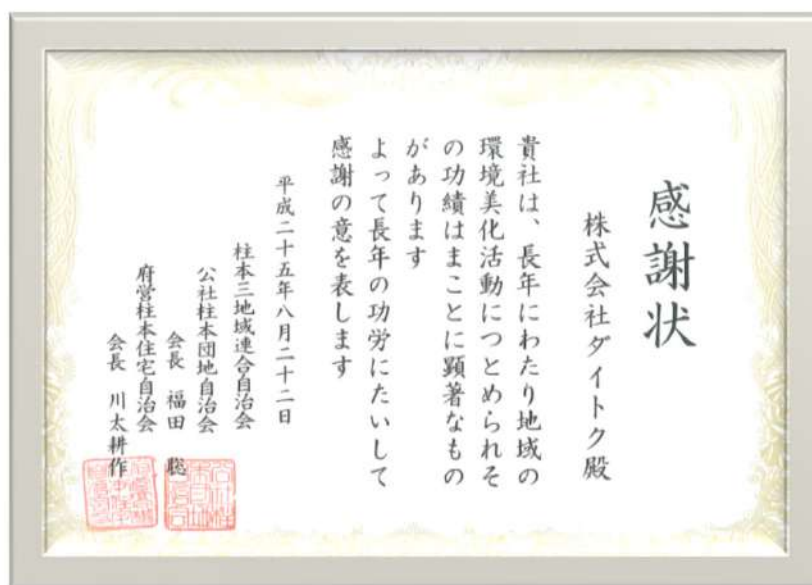 感謝状
株式会社ダイトク殿
貴社は、長年にわたり地域の
環境美化活動につとめられそ
の功績はまことに顕著なもの
があります
よって長年の功労にたいして
感謝の意を表します
平成二十五年八月二十二日
柱本三地域連合自治会
公社柱本団地自治会
会長 福田 聡
府営柱本住宅自治会
会長 川太耕作